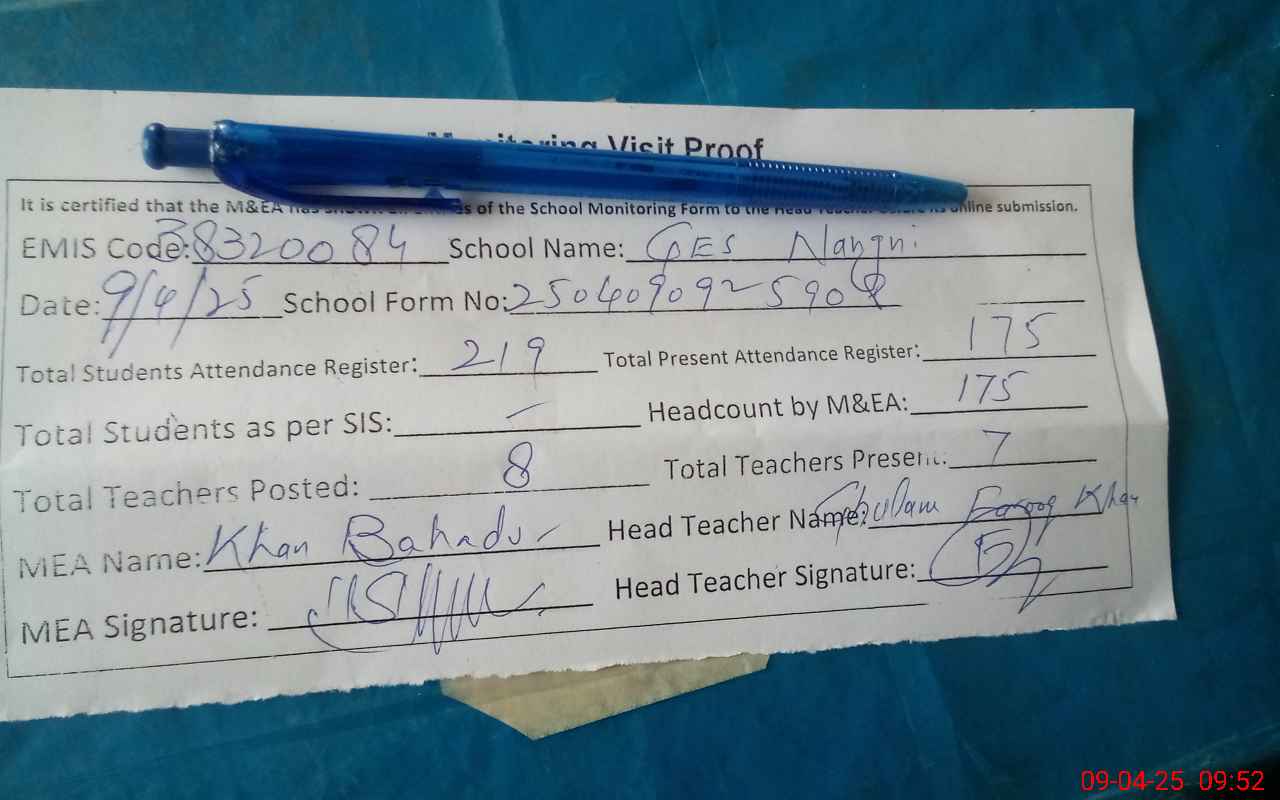 Monitoring Visit Proof
It is certified that the M&EA has shown all entries of the School Monitoring Form to the Head Teacher before its online submission.
EMIS Code: 38320084 School Name: GES Nangni
Date: 9/4/25 School Form No: 2504090925908
Total Students Attendance Register: 219 Total Present Attendance Register: 175
Total Students as per SIS: — Headcount by M&EA: 175
Total Teachers Posted: 8 Total Teachers Present: 7
MEA Name: Khan Bahadur Head Teacher Name: Ghulam Farooq Khan
MEA Signature: Head Teacher Signature:
09-04-25 09:52